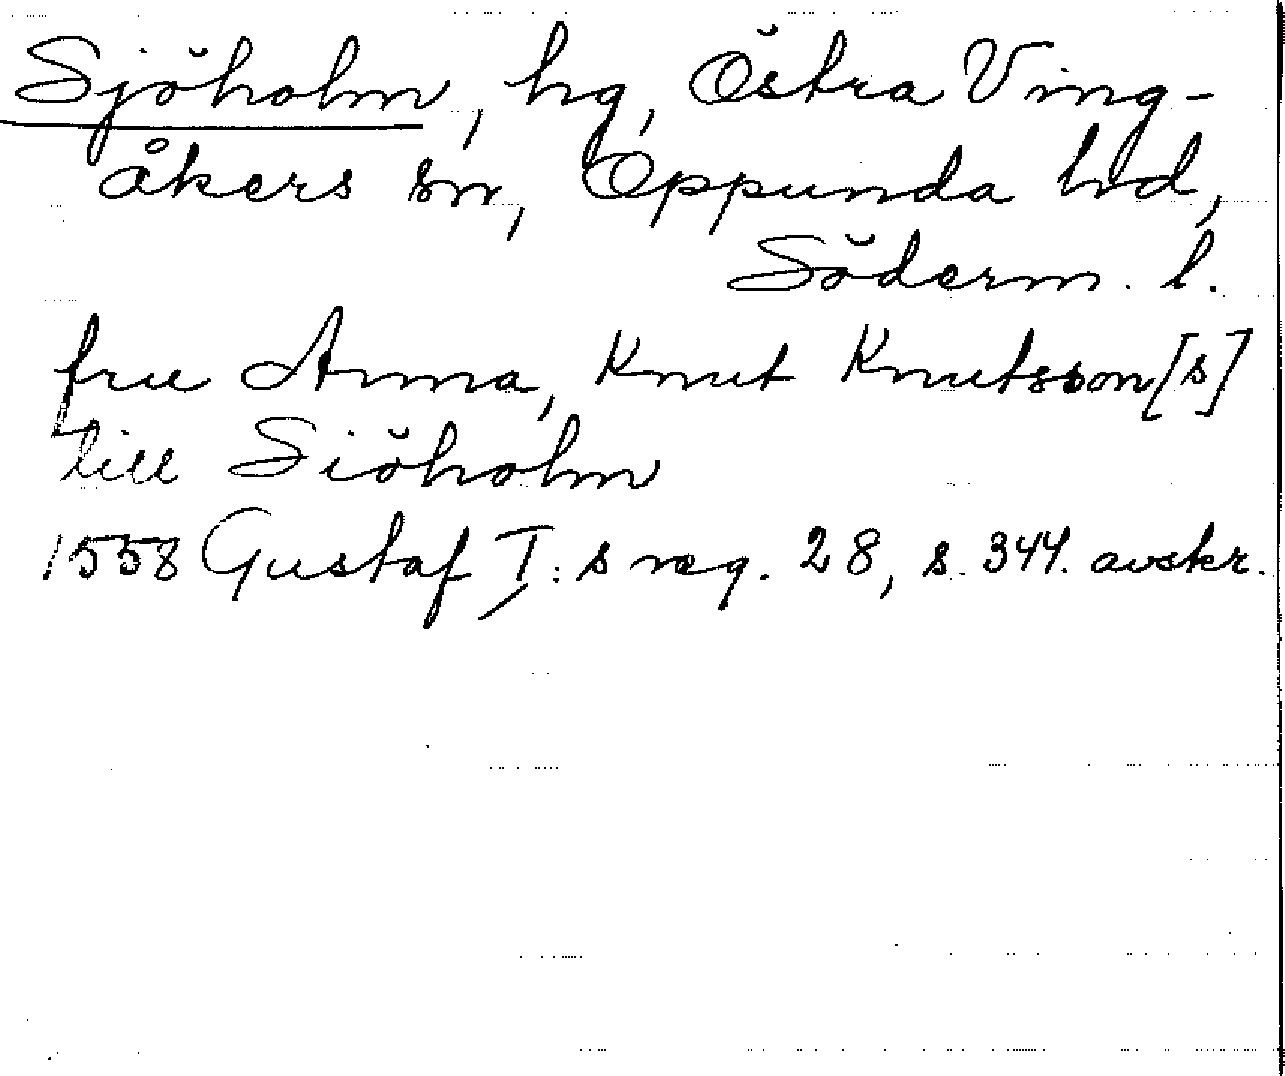 Sjöholm, hg, Östra Ving-
åkers sn, Oppunda hd,
Söderm. l.
fru Anna, Knut Knutsson[s]
till Siöholm
1558 Gustaf I:s reg. 28, s. 344. avskr.